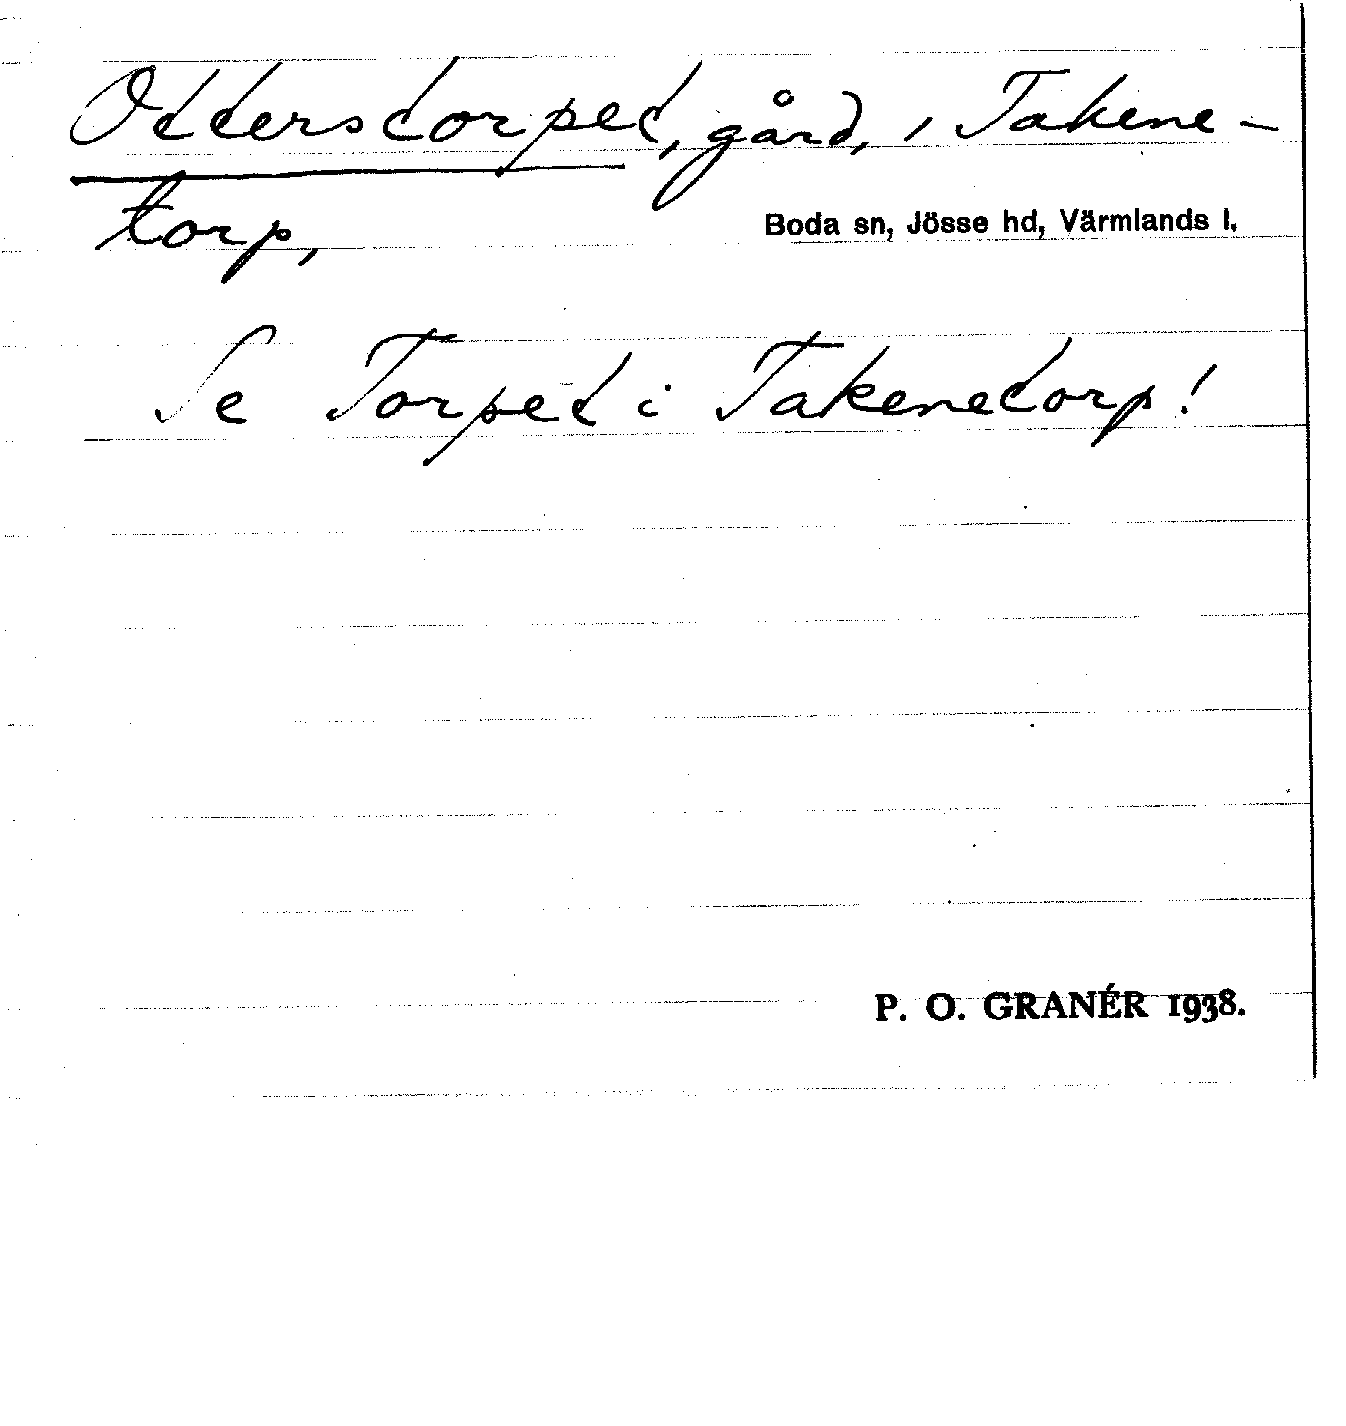 Otterstorpet, gård, i Takene-
torp,
Boda sn, Jösse hd, Värmlands l.
Se Torpet i Takenetorp!
P. O. GRANÉR 1938.